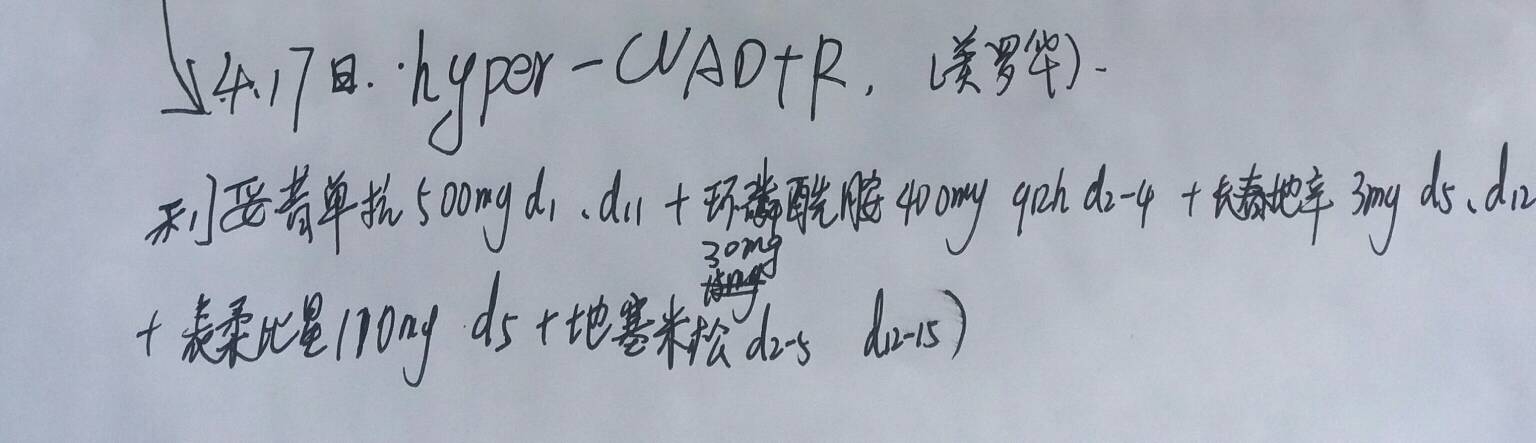 4.17日. hyper-CVAD+R. (美罗华).
利妥昔单抗500mg d1、d11 + 环磷酰胺400mg q12h d2-4 + 长春地辛 3mg d5、d12
30mg
+ 表柔比星110mg d5 + 地塞米松 d2-5 d12-15)